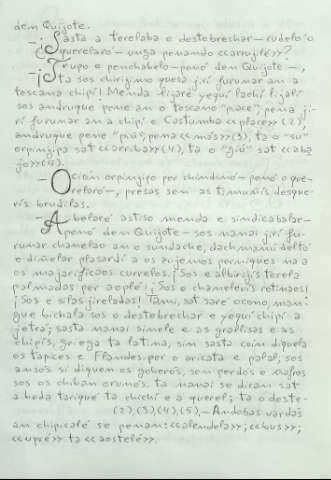 dem Quijote.
—¿Sasta a terelaba o destebrechar—rudeló o
querelaró—unga penando «carrujlé»?
—¡Trupo e penchabelo—penó dem Quijote—,
ta sos chirigimo quesa jri furunar an a
toscana chipí! Menda lizaré yequi lachi lijal
sos andruque pene an o toscano "piace", pena ji-
ri furunar an a chipí e Castumba «place» (2),
andruque pene "più", pena «más» (3), ta o "su"
orpinjipa sat «arriba» (4), ta o "giù" sat «aba
jo» (4).
—Ocirán orpinjipo per chindomó—penó o quere-
relaró—, presas sem as timuñís desque-
ris brudilas.
—Abelaré astiso menda e sindicabalar—
penó dem Quijote—sos nanai jri fu-
runar chamelao an o sundache, dachmanú deltó
e dinelar plasardí a os rujemos perniques na a
os majarificaos curreles. ¡Sos e albirijis terela
palmadas per aoplé! ¡Sos o chamelerís rotinaos!
¡Sos e silas jireladas! Tami, sat saré ocono, man
gue bichala sos o destebrechar e yequi chipí a
jetrá; sasta nanai simele e as grallisas e as
chipís, griega ta latina, sim sasta coin diquela
os tapices e Flandes per o aricata e palal, sos
ansós si diquem os goberós, sem perdós e mafros
sos os chiban oronós, ta nanai se dicam sat
a beda tarique ta chichí e a querel; ta o deste-
(2), (3), (4), (5).—Andobas vardas
an chipicalé se penam: «alendela»; «bus»;
«upré» ta «aostelé».